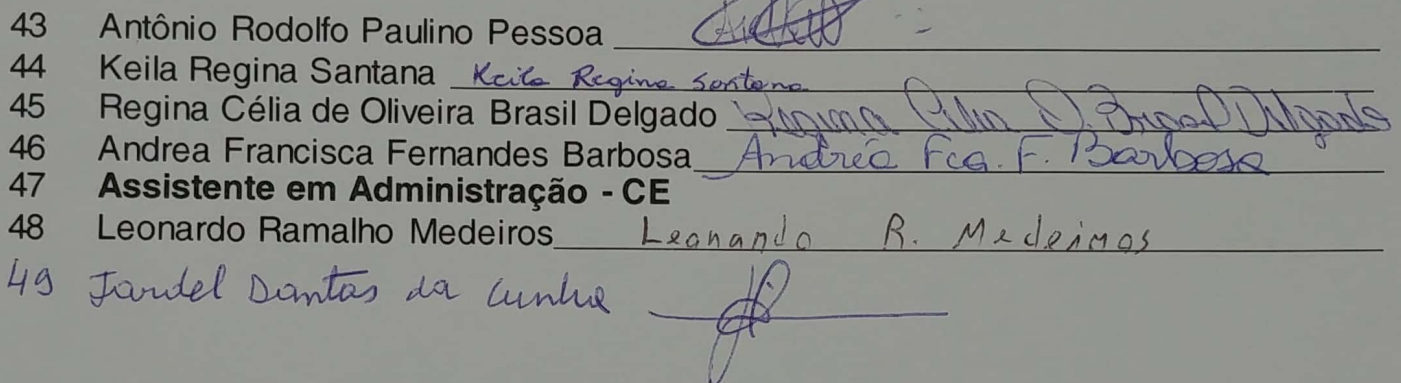 43 Antônio Rodolfo Paulino Pessoa
44 Keila Regina Santana Keila Regina Santana
45 Regina Célia de Oliveira Brasil Delgado Regina Célia O. Brasil Delgado
46 Andrea Francisca Fernandes Barbosa Andréa Fca. F. Barbosa
47 Assistente em Administração - CE
48 Leonardo Ramalho Medeiros Leonardo R. Medeiros
49 Jardel Dantas da Cunha